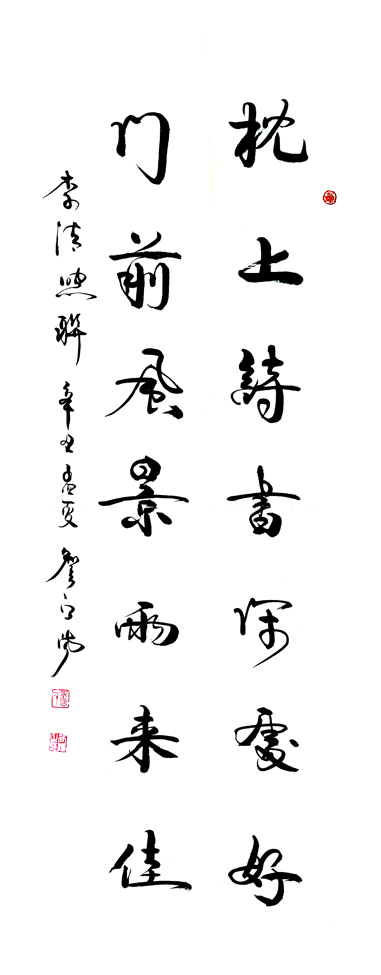 枕上詩書閑處好
門前風景雨来佳
李清照聯 辛丑孟夏